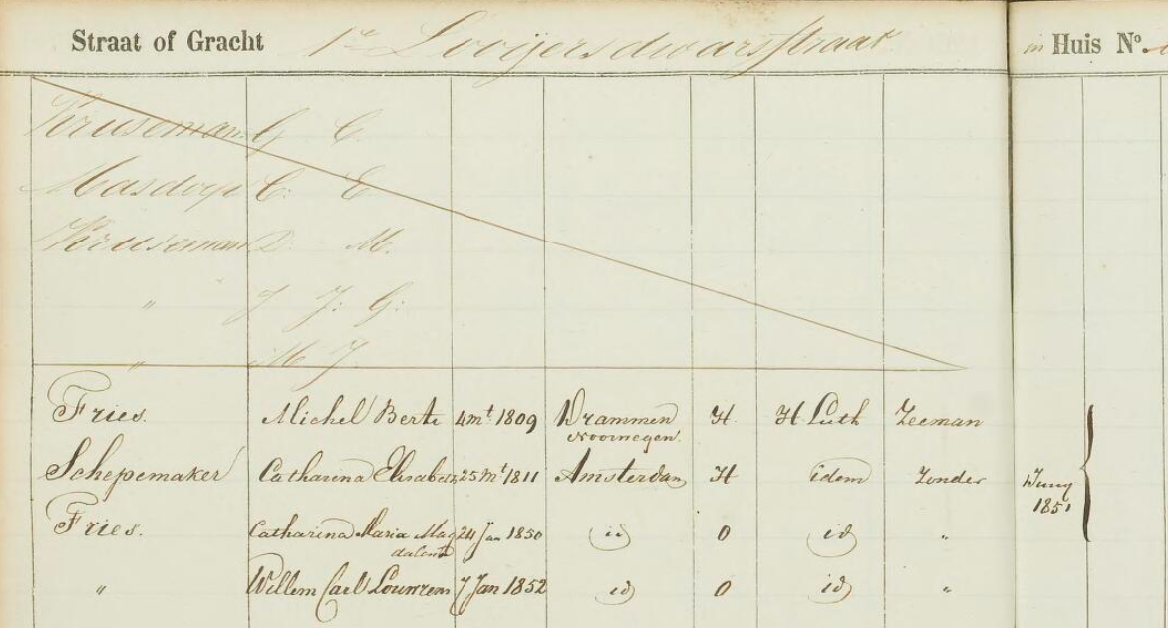 Straat of Gracht 1e Looijersdwarsstraat in Huis No.
Kruseman G C.
C: E
Kruseman D. M.
" J J: G:
" M J
Fries. Michel Berte 4 mt 1809 Drammen H. H Luth Zeeman
Noorwegen
Schepemaker Catharina Elisabeth 25 mt 1811 Amsterdam H idem Zonder Juny
1851
Fries. Catharina Maria Mag 24 Jan 1850 id O id "
dalena
" Willem Carl Louwrens 7 Jan 1852 id O id "